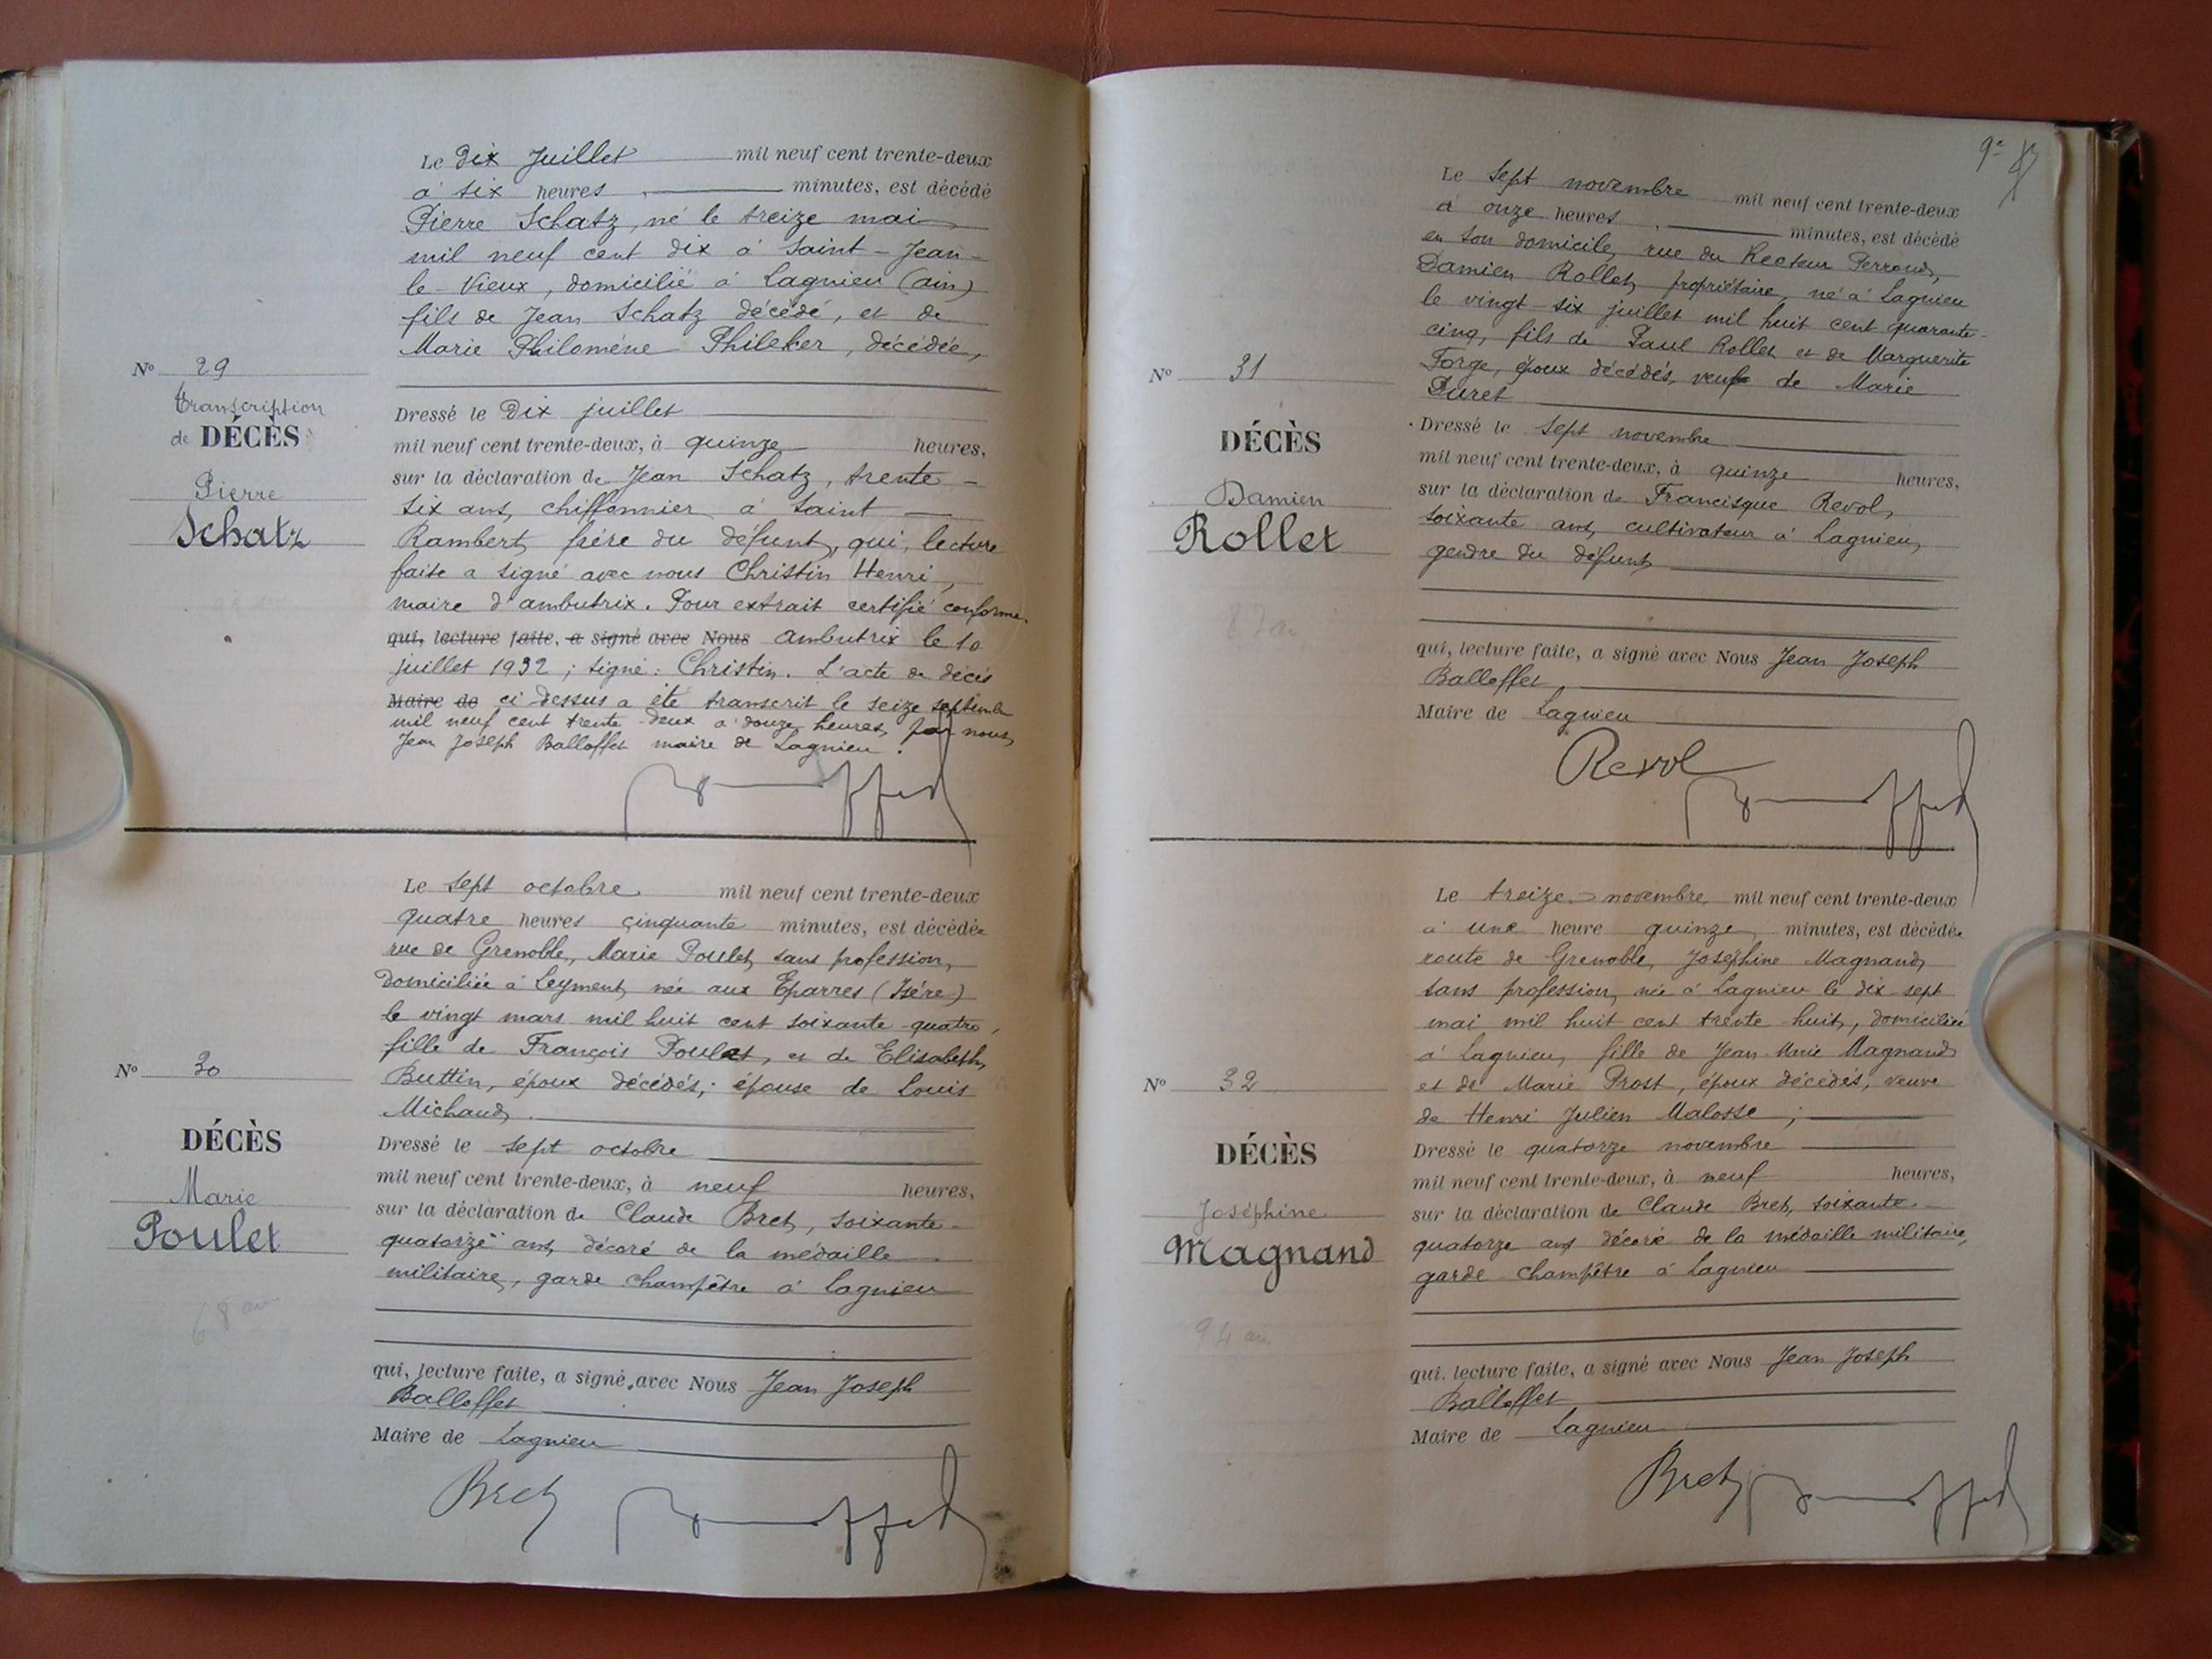 Le Dix Juillet mil neuf cent trente-deux
à six heures minutes, est décédé
Pierre Schatz, né le treize mai
mil neuf cent dix à Saint-Jean-
le-Vieux, domicilié à Lagnieu (ain)
fils de Jean Schatz décédé, et de
Marie Philomène Phileker, décédée,
Nº 29
transcription
de DÉCÈS
Pierre
Schatz
Dressé le Dix juillet
mil neuf cent trente-deux, à quinze heures,
sur la déclaration de Jean Schatz, trente-
six ans, chiffonnier à Saint-
Rambert, frère du défunt, qui, lecture
faite a signé avec nous Christin Henri,
maire d'ambutrix. Pour extrait certifié conforme.
qui, lecture faite, a signé avec Nous ambutrix le 10
juillet 1932 ; signé : Christin. L'acte de décès
Maire de ci-dessus a été transcrit le seize septembre
mil neuf cent trente-deux à douze heures, par nous,
Jean Joseph Balloffet maire de Lagnieu.
Le sept octobre mil neuf cent trente-deux
quatre heures cinquante minutes, est décédée
rue de Grenoble, Marie Poulet, sans profession,
domiciliée à Leyment, née aux Eparres (Isère)
le vingt mars mil huit cent soixante-quatre,
fille de François Poulet, et de Elisabeth
Buttin, époux décédés; épouse de Louis
Michaud.
Nº 30
DÉCÈS
Marie
Poulet
68 ans
Dressé le sept octobre
mil neuf cent trente-deux, à neuf heures,
sur la déclaration de Claude Bret, soixante-
quatorze ans, décoré de la médaille
militaire, garde champêtre à Lagnieu
qui, lecture faite, a signé avec Nous Jean Joseph
Balloffet
Maire de Lagnieu
Bret
9e
Le sept novembre mil neuf cent trente-deux
à onze heures minutes, est décédé
en son domicile, rue du Recteur Perroud,
Damien Rollet, propriétaire, né à Lagnieu
le vingt-six juillet mil huit cent quarante-
cinq, fils de Paul Rollet et de Marguerite
Forge, époux décédés, veuf de Marie
Puret
Nº 31
DÉCÈS
Damien
Rollet
87 an
Dressé le sept novembre
mil neuf cent trente-deux, à quinze heures,
sur la déclaration de Francisque Revol,
soixante ans, cultivateur à Lagnieu,
gendre du défunt
qui, lecture faite, a signé avec Nous Jean Joseph
Balloffet
Maire de Lagnieu
Revol
Le treize novembre mil neuf cent trente-deux
à une heure quinze minutes, est décédée
route de Grenoble, Joséphine Magnand,
sans profession, née à Lagnieu le dix sept
mai mil huit cent trente-huit, domiciliée
à Lagnieu, fille de Jean-Marie Magnand
et de Marie Prost, époux décédés, veuve
de Henri Julien Malosse ;
Nº 32
DÉCÈS
Joséphine
Magnand
94 an
Dressé le quatorze novembre
mil neuf cent trente-deux, à neuf heures,
sur la déclaration de Claude Bret, soixante-
quatorze ans décoré de la médaille militaire,
garde-champêtre à Lagnieu
qui, lecture faite, a signé avec Nous Jean Joseph
Balloffet
Maire de Lagnieu
Bret